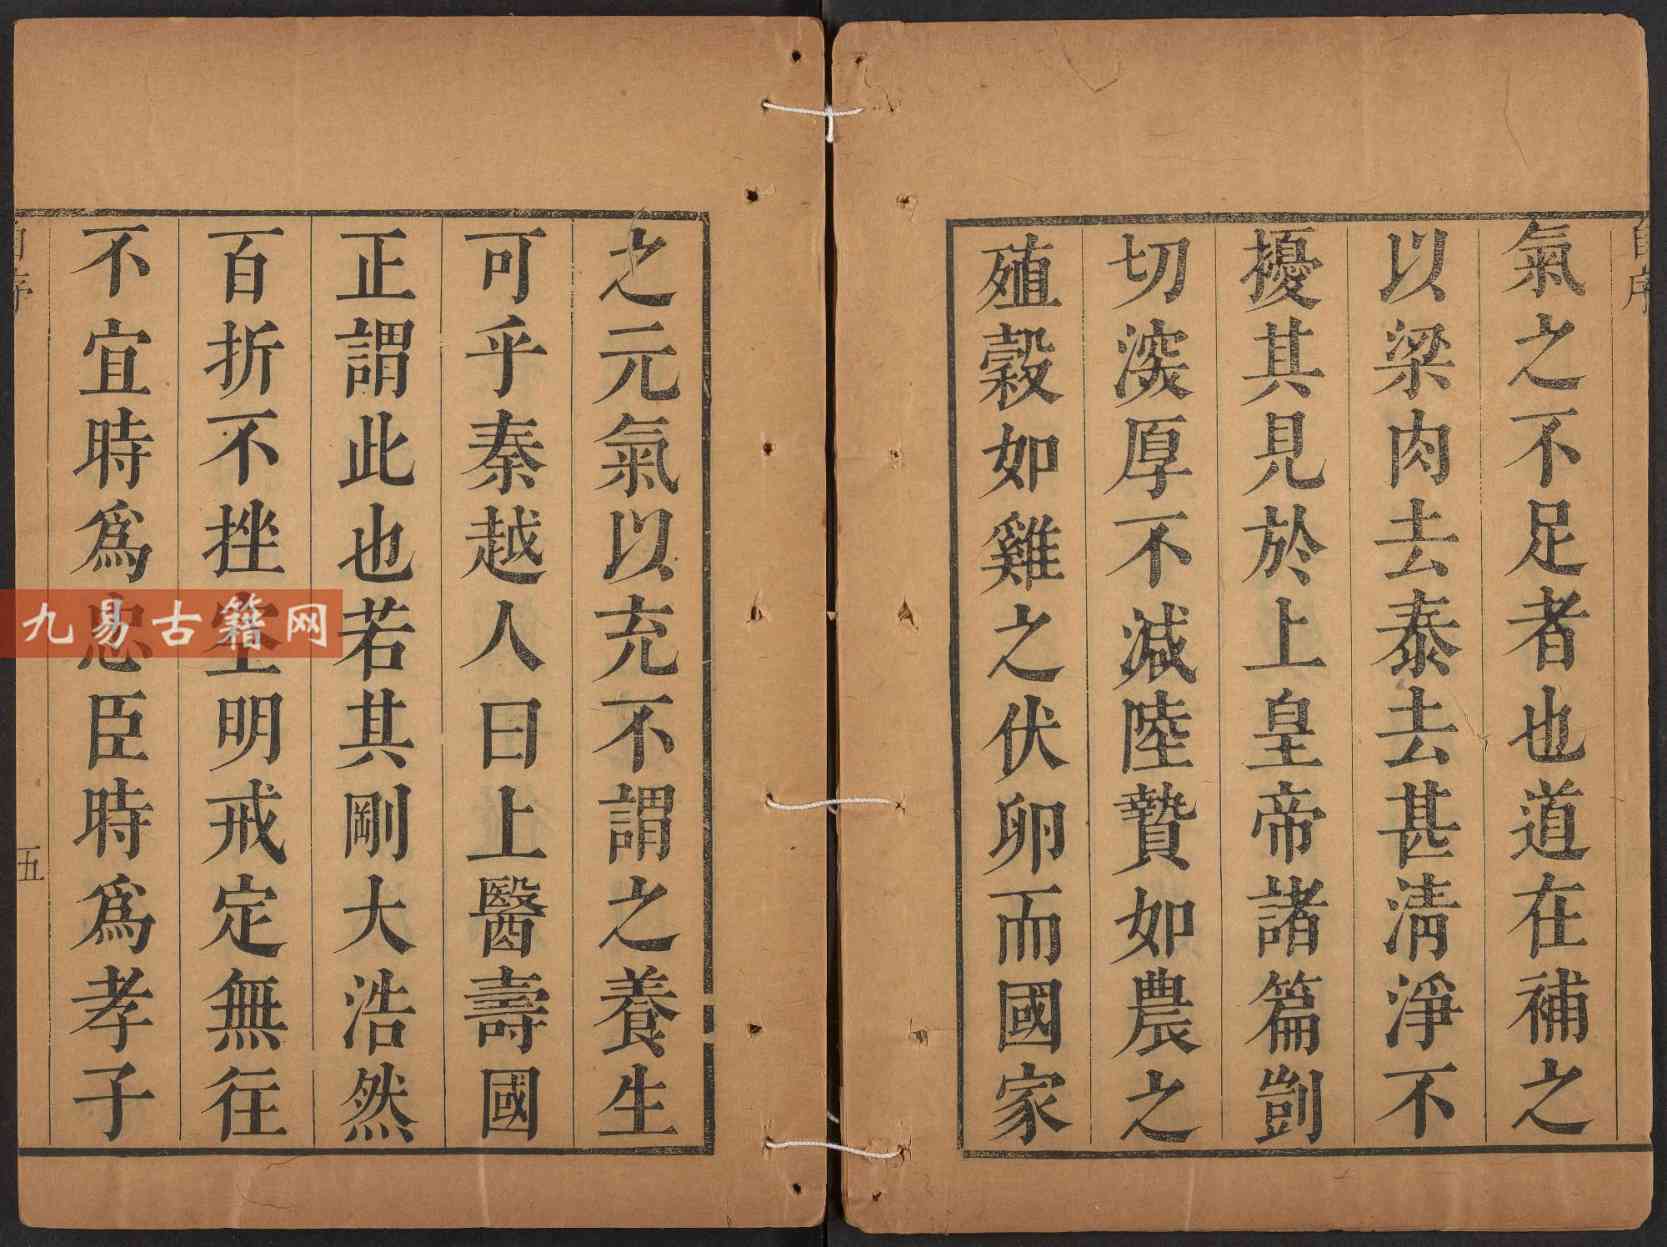 自序
氣之不足者也道在補之
以梁肉去泰去甚清淨不
擾其見於上皇帝諸篇剴
切深厚不減陸贄如農之
殖穀如雞之伏卵而國家
之元氣以充不謂之養生
可乎秦越人曰上醫壽國
正謂此也若其剛大浩然
百折不挫空明戒定無往
不宜時爲忠臣時爲孝子
自序
五
九易古籍网